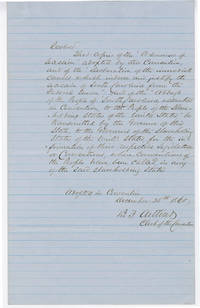 Resolved,
That copies of the "Ordinance of
Secession" adopted by this Convention
and of the "Declaration of the immediate
causes which induce and justify the
secession of South Carolina from the
Federal Union" and of the "Address
of the People of South Carolina assembled
in Convention to the People of the Slave
holding States of the United States" be
transmitted by the Governor of this
State to the Governors of the Slaveholding
States of the United States for the in
formation of their respective Legislatures
or Conventions, when Conventions of
the People have been called in any
of the said slaveholding States.
Adopted in Convention
December 1860.
B. F. Arthur
Clerk of the Convention